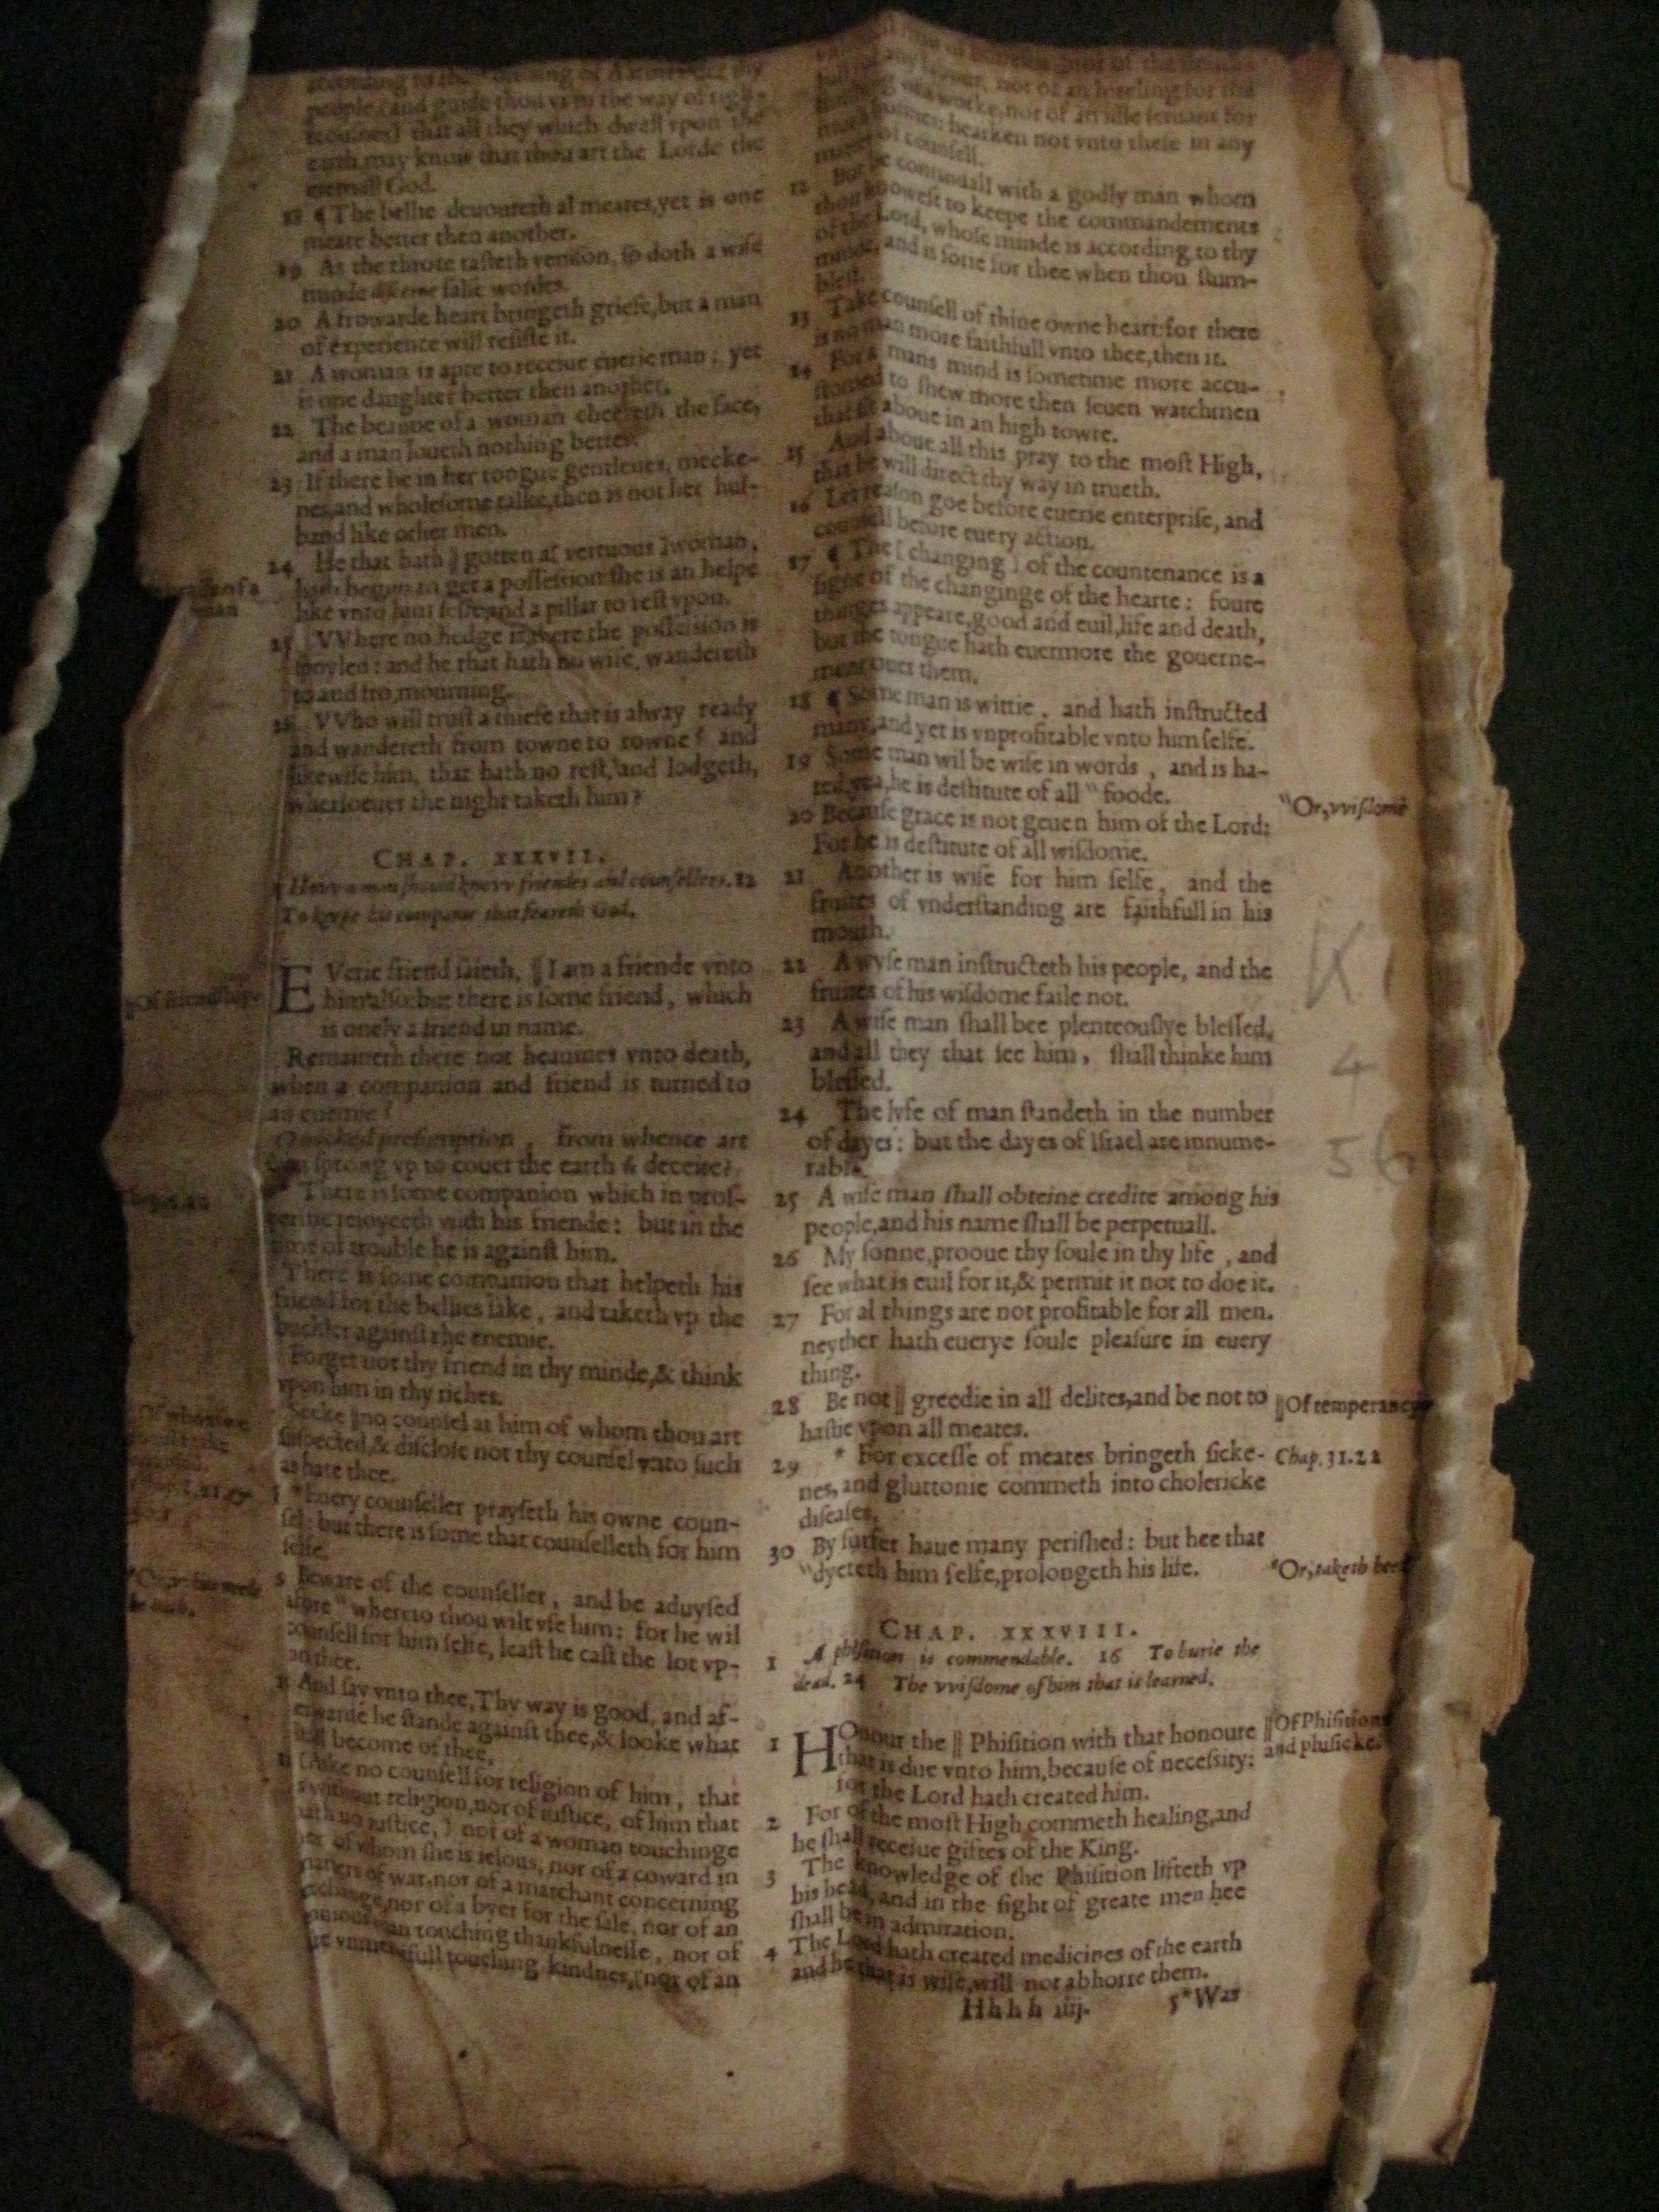 people, (and guide thou vs in the way of righ-
teousnes) that all they which dwell vpon the
earth, may know that thou art the Lorde the
eternall God.
18 ¶ The bellie deuoureth al meates, yet is one
meate better then another.
19 As the throte tasteth venison, so doth a wise
minde false wordes.
20 A frowarde heart bringeth griefe, but a man
of experience will resiste it.
21 A woman is apte to receiue euerie man: yet
is one daughter better then another.
22 The beautie of a woman cheereth the face,
and a man loueth nothing better.
23 If there be in her tongue gentlenes, meeke-
nes, and wholesome talke, then is not her hus-
band like other men.
24 He that hath || gotten a[ vertuous ] woman,
hath begun to get a possession: she is an helpe
like vnto him selfe, and a pillar to rest vpon.
25 VVhere no hedge is, there the possession is
spoyled: and he that hath no wife, wandereth
to and fro, mourning.
26 VVho will trust a thiefe that is alway ready
and wandereth from towne to towne? and
likewise him, that hath no rest, and lodgeth,
wheresoeuer the night taketh him?
CHAP. XXXVII.
1 How a man should knovv friendes and counsellers. 12
To keepe his companie that feareth God.
EVerie friend saieth, || I am a friende vnto
him also: but there is some friend, which
is onely a friend in name.
Remaineth there not heauines vnto death,
when a companion and friend is turned to
an enemie?
O wicked presumption, from whence art
thou sprong vp to couer the earth & deceite?
There is some companion which in pros-
peritie reioyceth with his friende: but in the
time of trouble he is against him.
There is some companion that helpeth his
friend for the bellies sake, and taketh vp the
buckler against the enemie.
Forget not thy friend in thy minde, & think
vpon him in thy riches.
Seeke || no counsel at him of whom thou art
suspected, & disclose not thy counsel vnto such
as hate thee.
* Euery counseller prayseth his owne coun-
sel: but there is some that counselleth for him
selfe.
Beware of the counseller, and be aduysed
afore " whereto thou wilt vse him: for he wil
counsell for him selfe, least he cast the lot vp-
on thee.
And say vnto thee, Thy way is good, and af-
terwarde he stande against thee, & looke what
shall become of thee.
[Aske no counsell for religion of him, that
is without religion, nor of iustice, of him that
hath no iustice, ] nor of a woman touchinge
her of whom she is ielous, nor of a coward in
matters of war, nor of a marchant concerning
exchange, nor of a byer for the sale, nor of an
enuious man touching thankfulnesse, nor of
the vnmercifull touching kindnes, [nor of an
||Of friendship.
any labour, nor of an hireling for the
finishing of a worke, nor of an idle seruant for
much busines: hearken not vnto these in any
matter of counsell.
12 But be continuall with a godly man whom
thou knowest to keepe the commandements
of the Lord, whose minde is according to thy
minde, and is sorie for thee when thou stum-
blest.
13 Take counsell of thine owne heart: for there
is no man more faithfull vnto thee, then it.
14 For a mans mind is sometime more accu-
stomed to shew more then seuen watchmen
that sit aboue in an high towre.
15 And aboue all this pray to the most High,
that he will direct thy way in trueth.
16 Let reason goe before euerie enterprise, and
counsell before euery action.
17 ¶ The [ changing ] of the countenance is a
signe of the changinge of the hearte: foure
thinges appeare, good and euil, life and death,
but the tongue hath euermore the gouerne-
ment ouer them.
18 ¶ Some man is wittie, and hath instructed
many, and yet is vnprofitable vnto him selfe.
19 Some man wil be wise in words, and is ha-
ted, yea, he is destitute of all " foode.
"Or, vvisdome
20 Because grace is not geuen him of the Lord:
For he is destitute of all wisdome.
21 Another is wise for him selfe, and the
fruites of vnderstanding are faithfull in his
mouth.
22 A wyse man instructeth his people, and the
fruites of his wisdome faile not.
23 A wise man shall bee plenteouslye blessed,
and all they that see him, shall thinke him
blessed.
24 The lyfe of man standeth in the number
of dayes: but the dayes of Israel are innume-
rable.
25 A wise man shall obteine credite among his
people, and his name shall be perpetuall.
26 My sonne, prooue thy soule in thy life, and
see what is euil for it, & permit it not to doe it.
27 For al things are not profitable for all men.
neyther hath euerye soule pleasure in euery
thing.
28 Be not || greedie in all delites, and be not to
hastie vpon all meates.
||Of temperancy
29 * For excesse of meates bringeth sicke-
nes, and gluttonie commeth into cholericke
diseases.
Chap. 31.22
30 By surfet haue many perished: but hee that
"dyeteth him selfe, prolongeth his life.
"Or, taketh heed
CHAP. XXXVIII.
1 A phisition is commendable. 16 To burie the
dead. 24 The vvisdome of him that is learned.
1 HOnour the || Phisition with that honoure
that is due vnto him, because of necessity:
for the Lord hath created him.
||Of Phisitions
and phisicke.
2 For of the most High commeth healing, and
he shall receiue giftes of the King.
3 The knowledge of the Phisition lifteth vp
his head, and in the sight of greate men hee
shall be in admiration.
4 The Lord hath created medicines of the earth
and he that is wise, will not abhorre them.
Hhhh iiij. 5 *Was
4
56